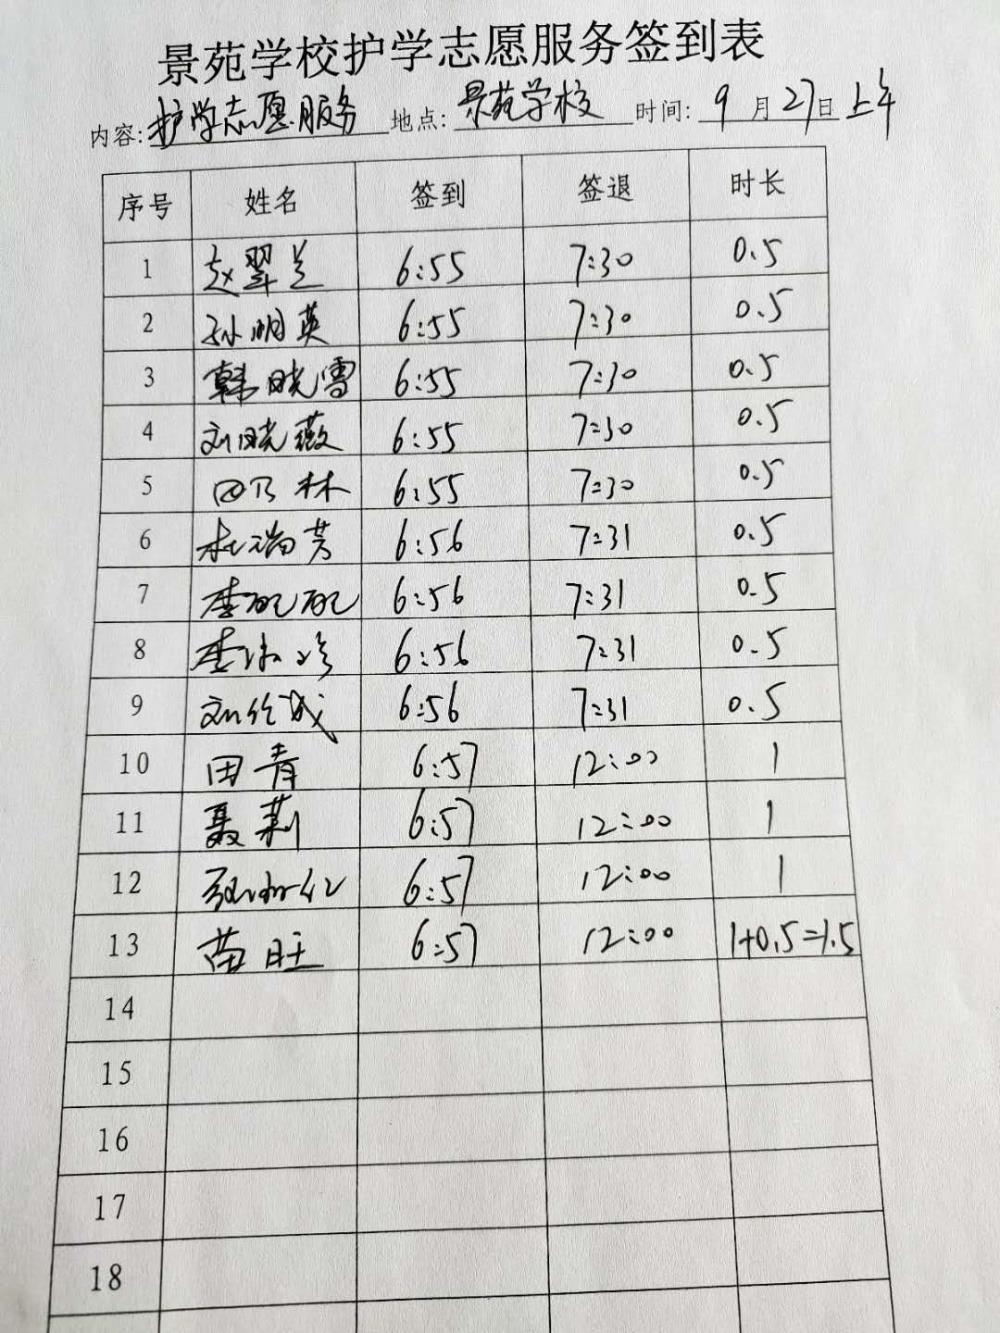 景苑学校护学志愿服务签到表
内容:护学志愿服务 地点:景苑学校 时间:9月27日上午
序号 姓名 签到 签退 时长
1 赵翠兰 6:55 7:30 0.5
2 孙明英 6:55 7:30 0.5
3 韩晓雪 6:55 7:30 0.5
4 刘晓薇 6:55 7:30 0.5
5 田乃林 6:55 7:30 0.5
6 杜瑞芳 6:56 7:31 0.5
7 李 6:56 7:31 0.5
8 李 6:56 7:31 0.5
9 刘 成 6:56 7:31 0.5
10 田青 6:57 12:00 1
11 聂莉 6:57 12:00 1
12 6:57 12:00 1
13 苗旺 6:57 12:00 1+0.5=1.5
14
15
16
17
18